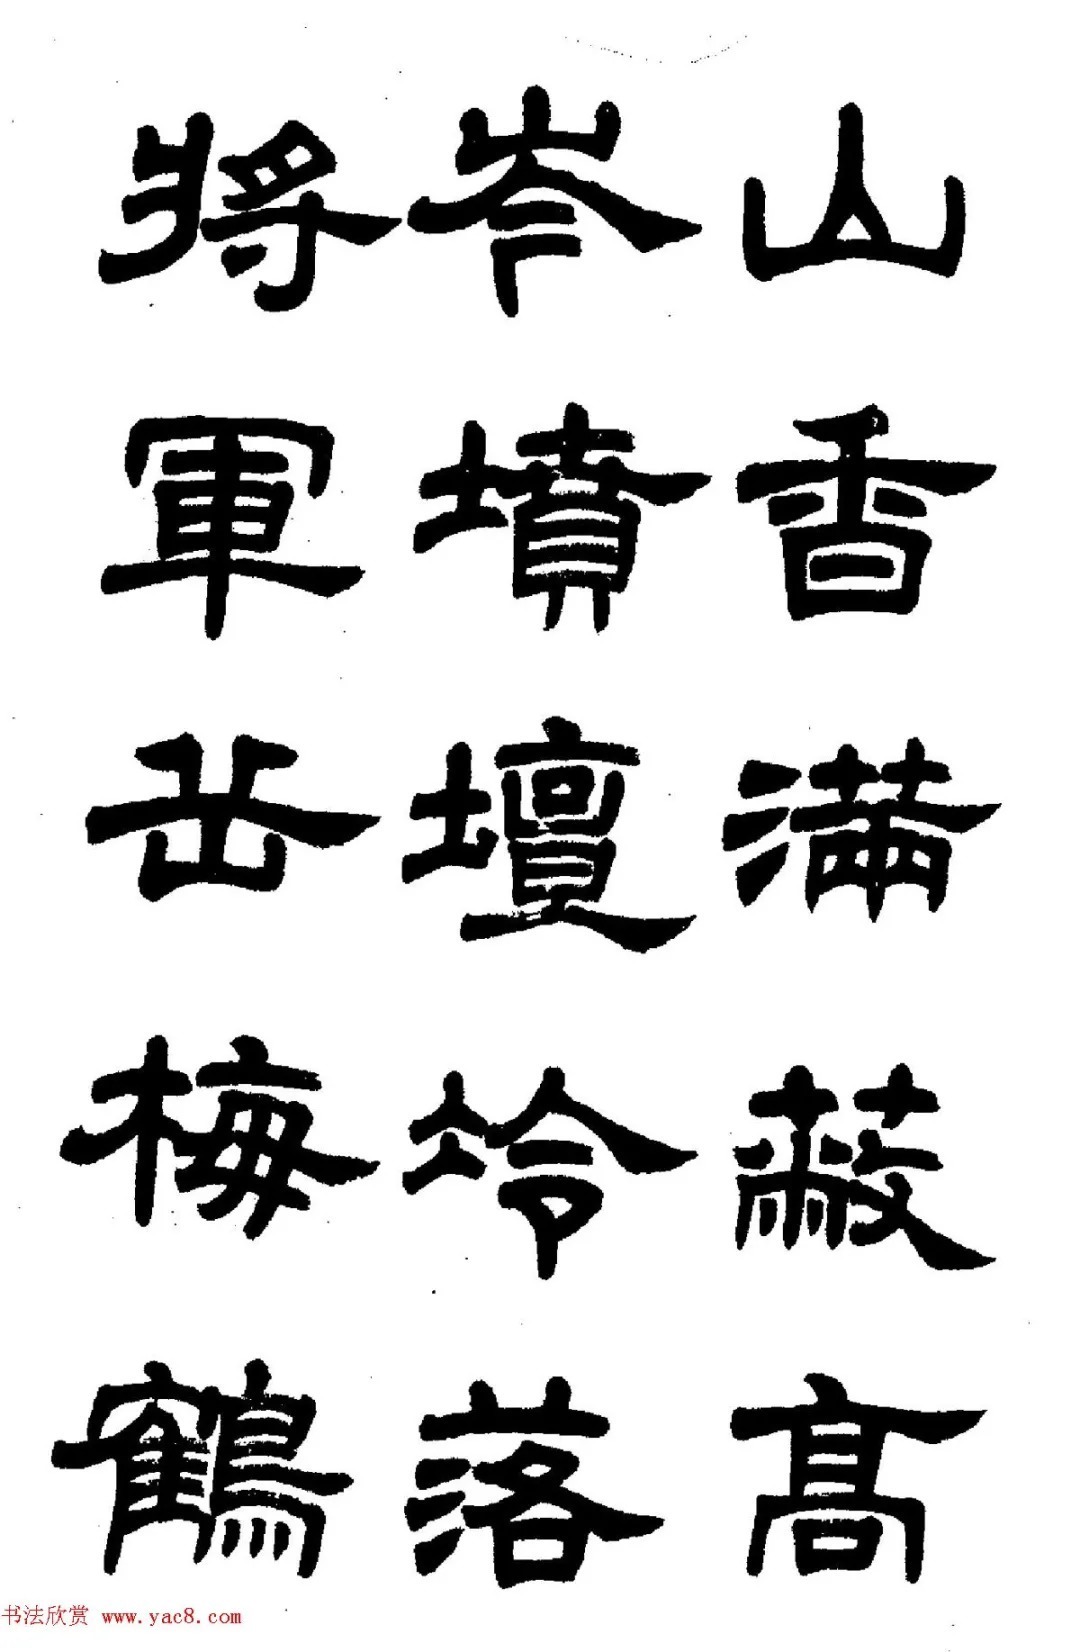 山香满蔽高
岑墳壇坽落
將軍岳梅鶴
书法欣赏 www.yac8.com